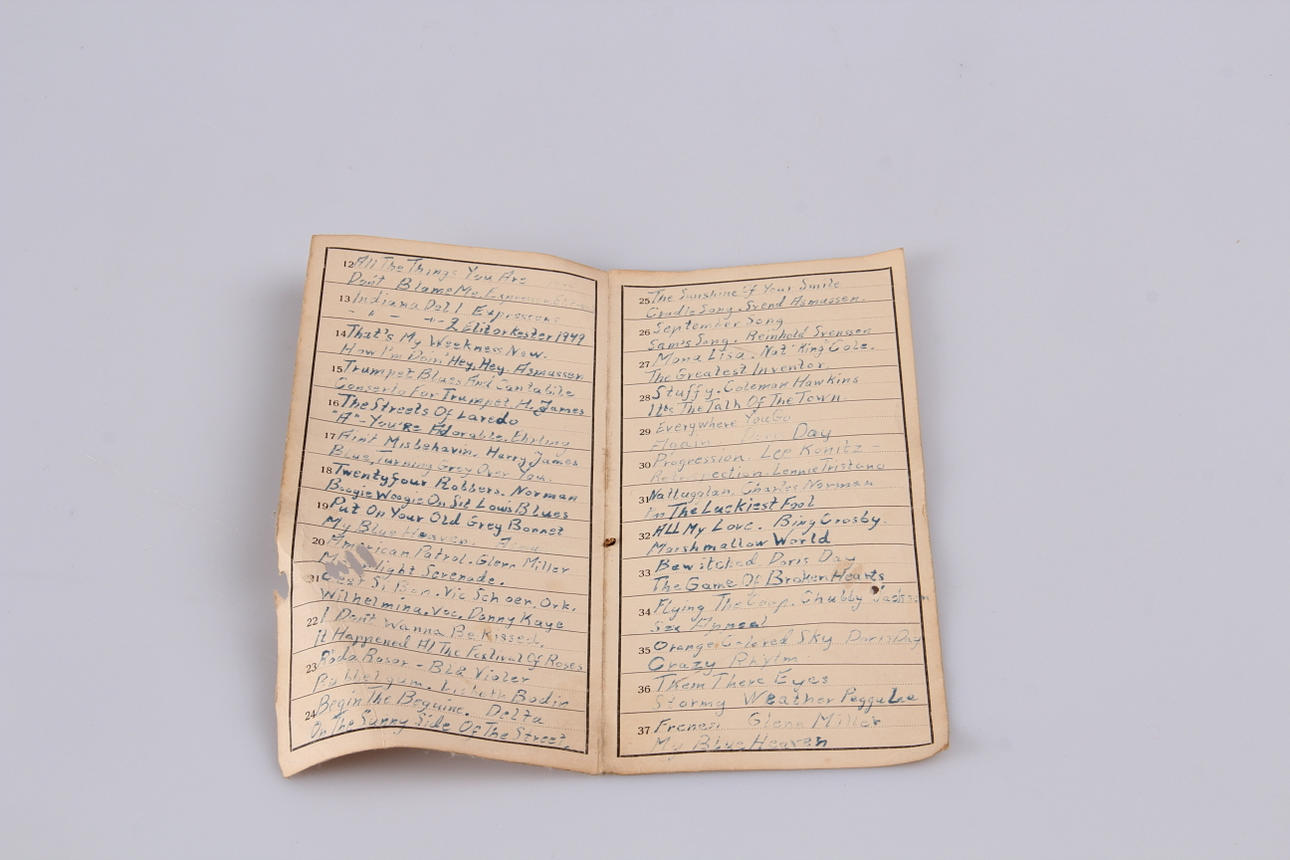 12 All The Things You Are
Don't Blame Me.
13 Indiana Del 1 Expressens
- " - -"- 2 Elitorkester 1949
14 That's My Weekness Now.
How I'm Doin' Hey, Hey. Asmussen
15 Trumpet Blues And Cantabile
Conserto for Trumpet H. James
16 The Streets Of Laredo
"A"-You're Adorable. Ehrling
17 Ain't Misbehavin. Harry James
Blue, Turning Grey Over You.
18 Twentyfour Robbers. Norman
Boogie Woogie On Sit Lows Blues
19 Put On Your Old Grey Bonnet
My Blue Heaven.
20 American Patrol. Glenn Miller
light Serenade.
21 Si Bon. Vic Schoer. Ork.
Wilhelmina. Voc. Danny Kaye
22 I Don't Wanna Be Kissed.
It Happened At The Festival Of Roses
23 Röda Rosor - Blå Violer
Lisbeth Bodin
24 Begin The Beguine. Delta
On The Sunny Side Of The Street.
25 The Sunshine of Your Smile
Cradle Song. Svend Asmussen.
26 September Song
Sam's Song. Reinhold Svensson
27 Mona Lisa. Nat' King' Cole.
The Greatest Inventor.
28 Stuffy. Coleman Hawkins
It's The Talk Of The Town.
29 Everywhere You Go
Again Doris Day
30 Progression. Lee Konitz -
Retrospection. Lennie Tristano
31 Nattugglan. Charles Norman
I'm The Luckiest Fool
32 All My Love. Bing Crosby.
Marshmallow World
33 Bewitched Doris Day
The Game Of Broken Hearts
34 Flying The Coop. Chubby Jackson
Sax Appeal
35 Orange Colored Sky Doris Day
Crazy Rhytm
36 Them There Eyes
Stormy Weather Peggy Lee
37 Frenesi Glenn Miller
My Blue Heaven